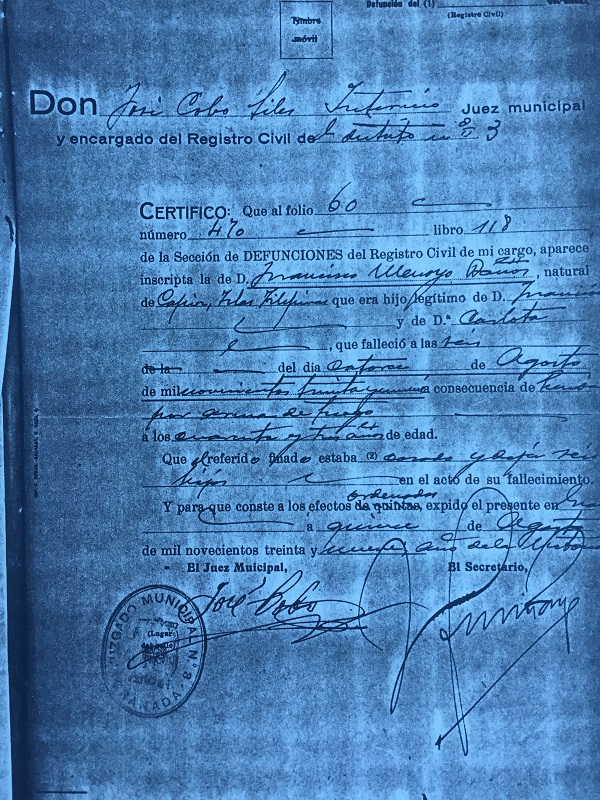 Timbre
móvil
Defunción del (1)
(Registro Civil)
Don José Cobo Siles Interino Juez municipal
y encargado del Registro Civil del distrito nº 3
CERTIFICO: Que al folio 60
número 470 libro 118
de la Sección de DEFUNCIONES del Registro Civil de mi cargo, aparece
inscripta la de D. Francisco Menoyo Baños, natural
de Capiz, Islas Filipinas que era hijo legítimo de D.
y de D.ª Carlota
, que falleció a las seis
de la del día catorce de Agosto
de mil novecientos treinta y a consecuencia de
por arma de fuego
a los cuarenta y tres años de edad.
Que el referido finado estaba (2) casado y deja seis
hijos en el acto de su fallecimiento.
ordenados
Y para que conste a los efectos de quintas, expido el presente en
a quince de Agosto
de mil novecientos treinta y nueve, año de la
El Juez Muicipal, El Secretario,
José Cobo
JUZGADO MUNICIPAL N.º 3
GRANADA
(Lugar
del sello)